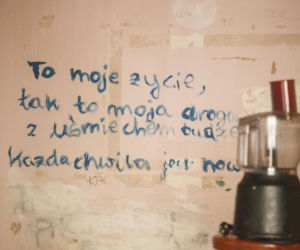 To moje zycie,
tak to moja droga
z uśmiechem budzę
każda chwila jest now